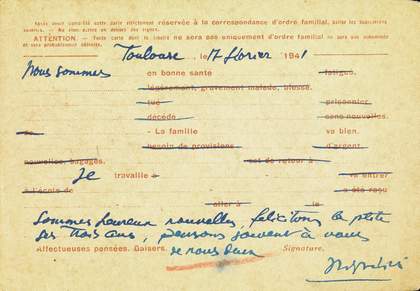 Après avoir complété cette partie strictement réservée à la correspondance d'ordre familial, biffer les indications
inutiles. — Ne rien écrire en dehors des lignes.
ATTENTION. — Toute carte dont le libellé ne sera pas uniquement d'ordre familial ne sera pas acheminée
et sera probablement détruite.
Toulouse, le 17 février 1941
Nous sommes en bonne santé fatigué.
légèrement, gravement malade, blessé.
tué prisonnier
décédé sans nouvelles
La famille va bien.
besoin de provisions d'argent.
nouvelles, bagages. est de retour à
Je travaille à va entrer
à l'école de a été reçu
aller à le
Sommes heureux nouvelles, félicitons la petite
ses trois ans, pensons souvent à vous
Affectueuses pensées. Baisers. Signature.